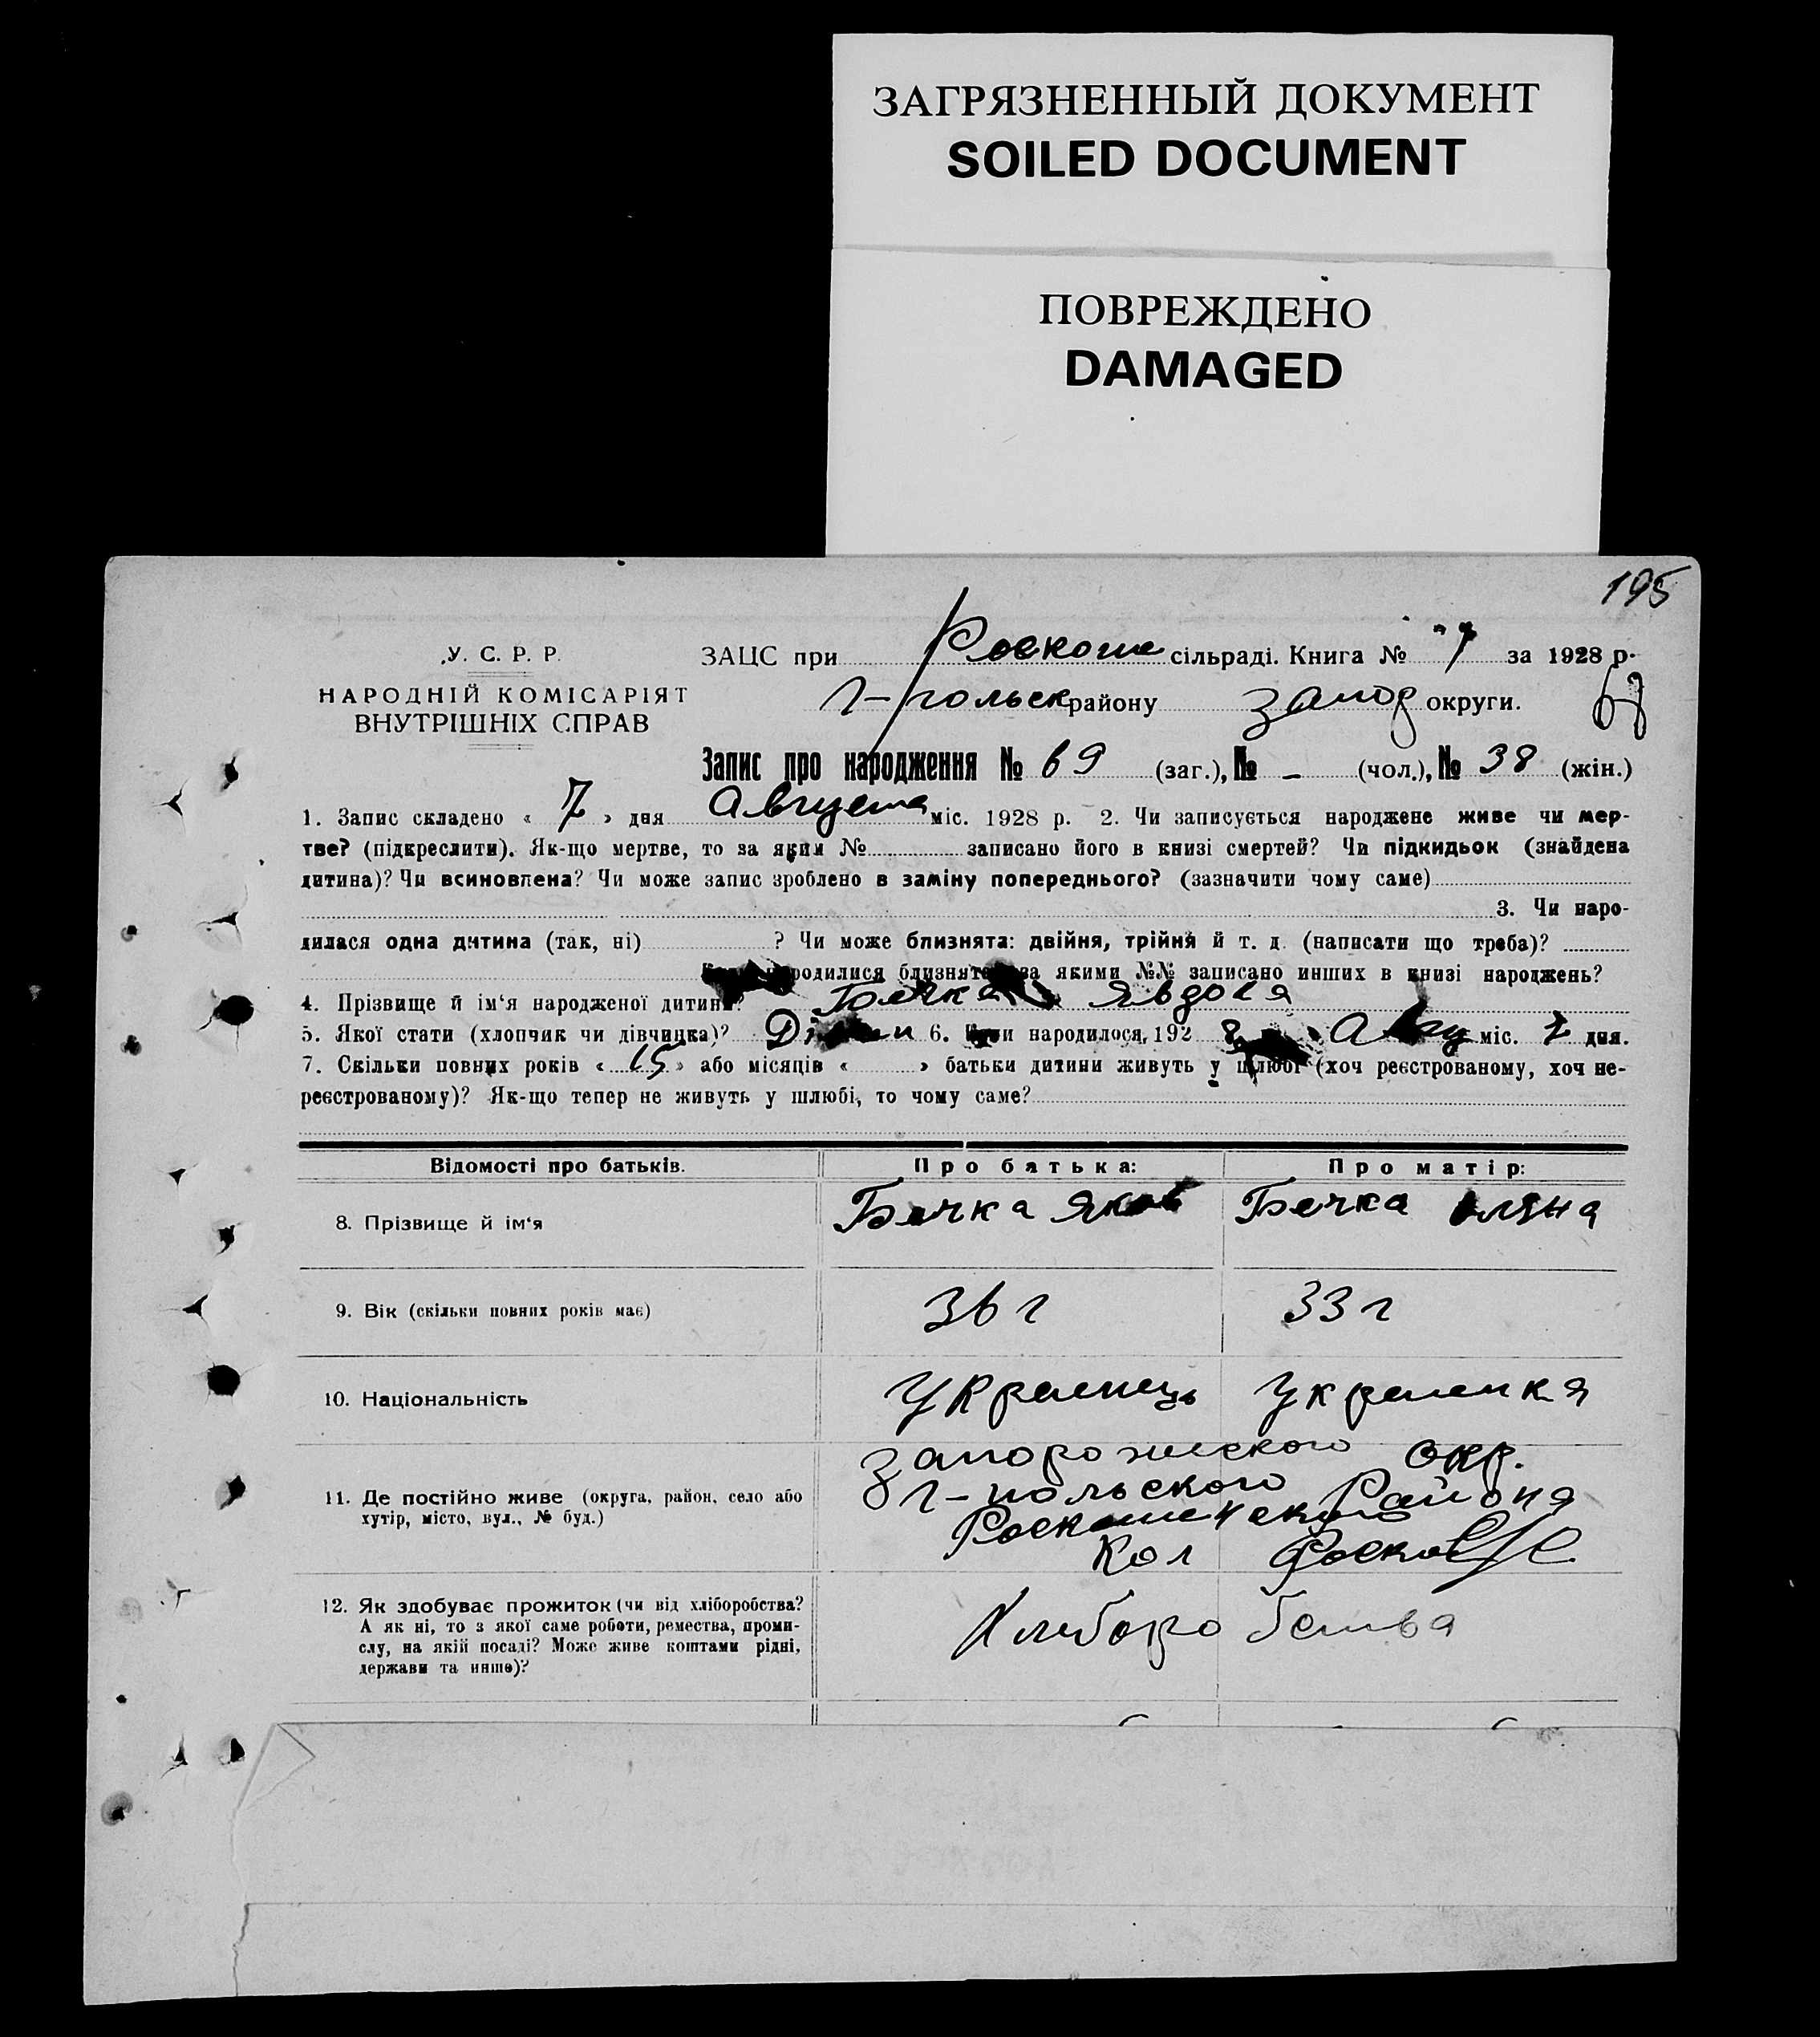 ЗАГРЯЗНЕННЫЙ ДОКУМЕНТ
SOILED DOCUMENT
ПОВРЕЖДЕНО
DAMAGED
195
У. С. Р. Р.
НАРОДНІЙ КОМІСАРІЯТ
ВНУТРІШНІХ СПРАВ
ЗАЦС при Роскоше сільраді. Книга № 7 за 1928 р.
Г-польск району Запор округи.
Запис про народження № 69 (заг.), № - (чол.), № 38 (жін.)
1. Запис складено « 7 » дня Августа міс. 1928 р. 2. Чи записується народжене живе чи мер-
тве? (підкреслити). Як-що мертве, то за яким № записано його в книзі смертей? Чи підкидьок (знайдена
дитина)? Чи всиновлена? Чи може запис зроблено в заміну попереднього? (зазначити чому саме)
3. Чи наро-
дилася одна дитина (так, ні) ? Чи може близнята: двійня, трійня й т. д. (написати що треба)?
родилися близнята за якими №№ записано инших в книзі народжень?
4. Прізвище й ім'я народженої дитини? Бечка Явдоха
5. Якої стати (хлопчик чи дівчинка)? 6. Коли народилося, 192 8 Авгу міс. 2 дня.
7. Скільки повних років « 15 » або місяців « » батьки дитини живуть у шлюбі (хоч реєстрованому, хоч не-
реєстрованому)? Як-що тепер не живуть у шлюбі, то чому саме?
Відомості про батьків. Про батька: Про матір:
8. Прізвище й ім'я Бечка Яков Бечка Оляна
9. Вік (скільки повних років має) 36 г 33 г
10. Національність Украенець Украенкя
11. Де постійно живе (округа, район, село або
хутір, місто, вул., № буд.)
Запорожского Окр.
Г-польского Района
Кол
12. Як здобуває прожиток (чи від хліборобства?
А як ні, то з якої саме роботи, ремества, проми-
слу, на якій посаді? Може живе коштами рідні,
держави та инше)?
Хлиборобства